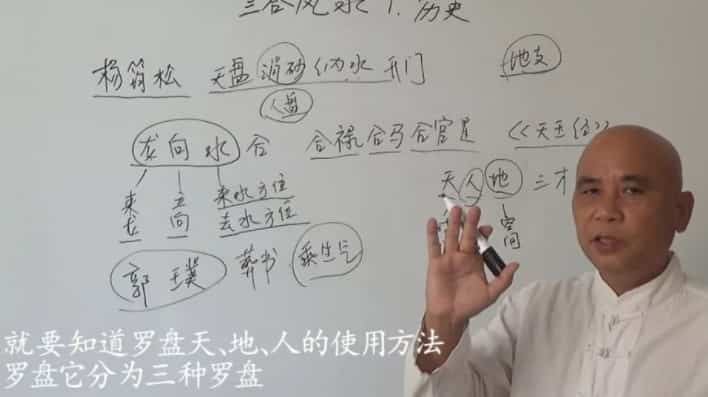 三合风水 1. 历史
杨筠松 天盘 消砂 纳水 开门
地支
人盘
龙向水 合 合禄合马合官星 《天玉经》
天人地 三才
来龙 立向 来水方位
去水方位
空间
郭璞 葬书 乘生气
就要知道罗盘天、地、人的使用方法
罗盘它分为三种罗盘